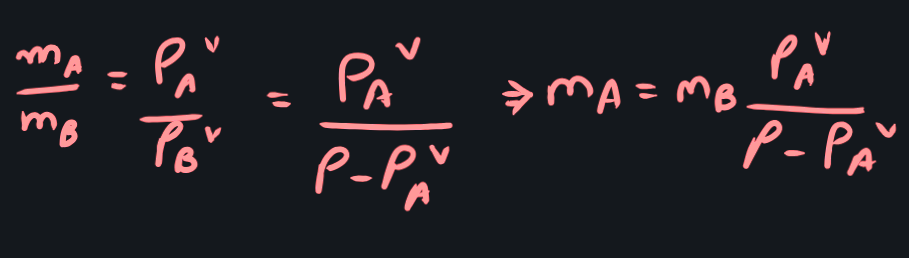 m_A / m_B = P_A^v / P_B^v = P_A^v / (P - P_A^v) ⇒ m_A = m_B P_A^v / (P - P_A^v)